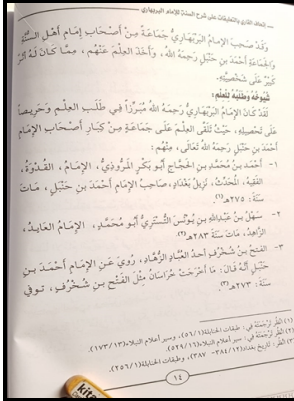 إتحاف القاري بالتعليقات على شرح السنة للإمام البربهاري
وَقَدْ صَحِبَ الإِمَامُ البَرْبَهَارِيُّ جَمَاعَةً مِنْ أَصْحَابِ إِمَامِ أَهْلِ السُّنَّةِ
وَالجَمَاعَةِ أَحْمَدَ بْنِ حَنْبَلٍ رَحِمَهُ اللهُ، وَأَخَذَ العِلْمَ عَنْهُم، مِمَّا كَانَ لَهُ أَثَرٌ
كَبِيرٌ عَلَى شَخْصِيَّتِهِ.
شُيُوخُهُ وَطَلَبُهُ لِلْعِلْمِ:
لَقَدْ كَانَ الإِمَامُ البَرْبَهَارِيُّ رَحِمَهُ اللهُ مُبَرَّزاً فِي طَلَبِ العِلْمِ وَحَرِيصاً
عَلَى تَحْصِيلِهِ، حَيْثُ تَلَقَّى العِلْمَ عَلَى جَمَاعَةٍ مِنْ كِبَارِ أَصْحَابِ الإِمَامِ
أَحْمَدَ بْنِ حَنْبَلٍ رَحِمَهُ اللهُ تَعَالَى، مِنْهُمْ:
١- أَحْمَدُ بْنُ مُحَمَّدِ بْنِ الحَجَّاجِ أَبُو بَكْرٍ المَرُّوذِيُّ، الإِمَامُ، القُدْوَةُ،
الفَقِيهُ، المُحَدِّثُ، نَزِيلُ بَغْدَادَ، صَاحِبُ الإِمَامِ أَحْمَدَ بْنِ حَنْبَلٍ، مَاتَ
سَنَةَ: ٢٧٥هـ(١).
٢- سَهْلُ بْنُ عَبْدِاللهِ بْنِ يُونُسَ التُّسْتَرِيُّ أَبُو مُحَمَّدٍ، الإِمَامُ العَابِدُ،
الزَّاهِدُ، مَاتَ سَنَةَ ٢٨٣هـ(٢).
٣- الفَتْحُ بْنُ شُخْرُفٍ أَحَدُ العُبَّادِ الزُّهَّادِ، رُوِيَ عَنِ الإِمَامِ أَحْمَدَ بنِ
حَنْبَلٍ أَنَّهُ قَالَ: مَا أَخْرَجَتْ خُرَاسَانُ مِثْلَ الفَتْحِ بنِ شُخْرُفٍ، تُوفِّي
سَنَةَ: ٢٧٣هـ(٣).
(١) انْظُر تَرْجَمَتَهُ في: طبقات الحنابلة (٥٦/١)، وسير أعلام النبلاء (١٧٣/١٣).
(٢) انْظُر تَرْجَمَتَهُ في: سير أعلام النبلاء
(٣) انظر: تاريخ بغداد (٣٨٤/١٢- ٣٨٧)، وطبقات الحنابلة (٢٥٦/١).
١٤